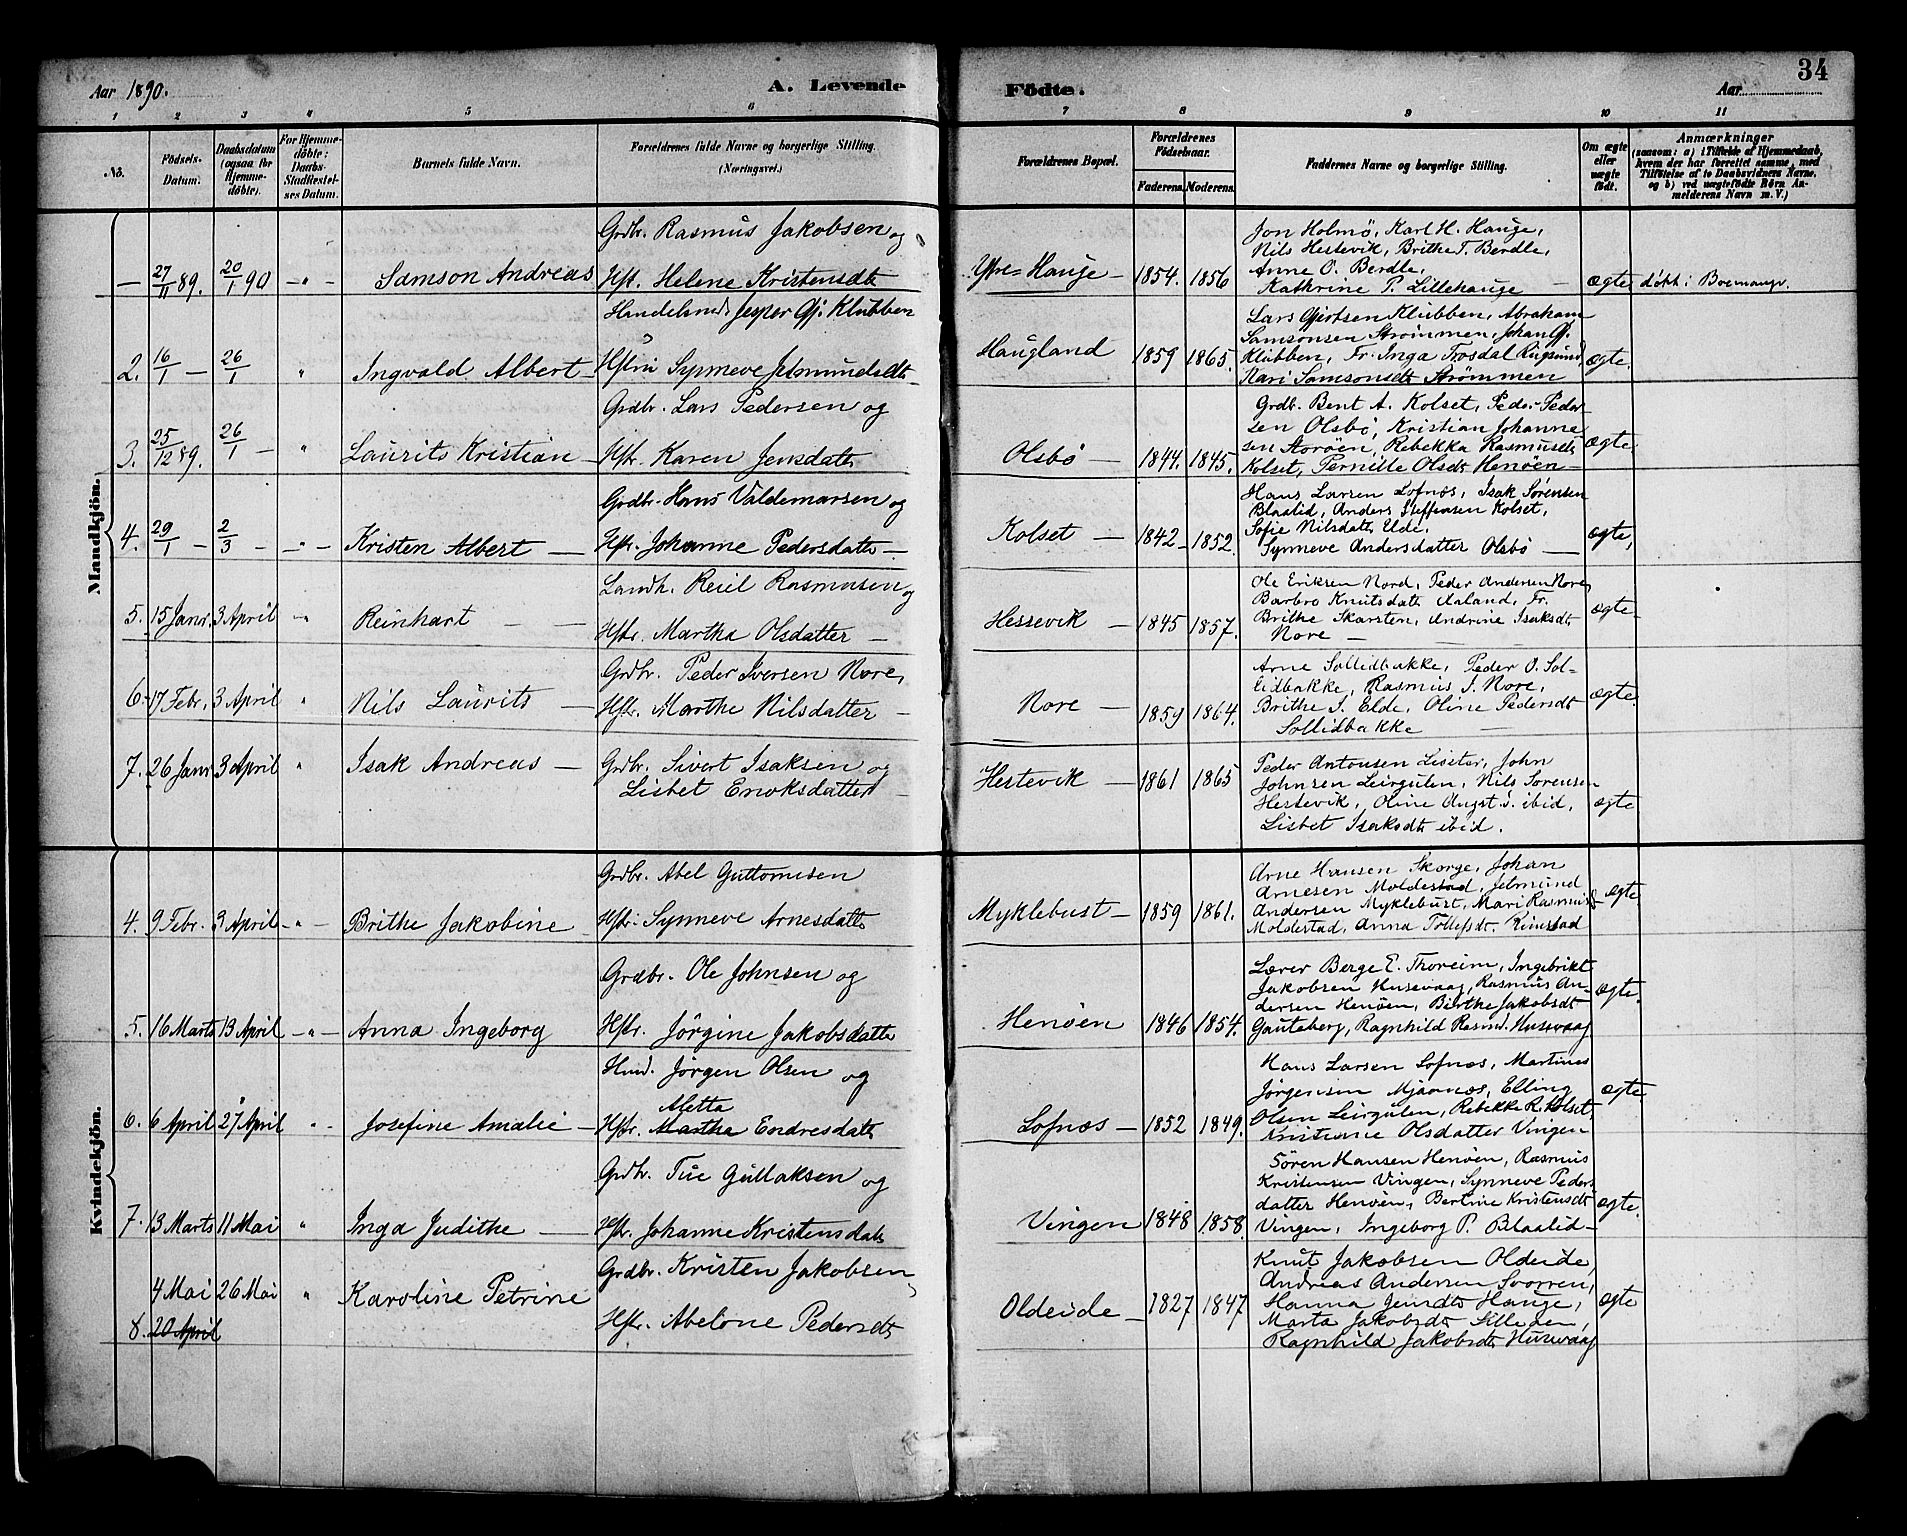 34
Aar 1890. A. Levende Födte. Aar
1 2 3 4 5 6 7 8 9 10 11
No. Födsels-Datum. Daabsdatum (ogsaa for Hjemme-döbte). For Hjemme-döbte: Daabs-Stadfæstel-ses Datum. Barnets fulde Navn. Forældrenes fulde Navne og borgerlige Stilling. (Næringsvei.) Forældrenes Bopæl. Forældrenes Födselsaar. Faderens. Moderens. Faddernes Navne og borgerlige Stilling. Om ægte eller uægte födt. Anmærkninger
(saasom: a) i Tilfælde af Hjemmedaab,
hvem der har forrettet samme, med
Tilföielse af to Daabsvidners Navne,
og b) ved uægtefödte Börn An-
melderens Navn m. V.)
Mandkjön.
— 27/11 89. 20/1 90 — " — Samson Andreas
Grdbr. Rasmus Jakobsen og
Hst. Helene Kristensdtr
Ytre= Hauge — 1854. 1856
Jon Holmö, Karl H. Hauge,
Nils Hestevik, Brithe T. Berdle,
Anne O. Berdle,
Kathrine P. Lillehauge —
ægte döbt i Bremanger.
2. 16/1 — 26/1 " Ingvald Albert —
Handelsmd. Jesper Gj. Klubben
Hstru Synneve Jetmundsdtr
Haugland 1859 1865.
Lars Gjertsen Klubben, Abraham
Samsonsen Strömmen, Johan Gj.
Klubben, Fr. Inga Trosdal Rugsund,
Kari Samsonsdtr Strömmen
ægte.
3. 25/12 89. 26/1 — " Laurits Kristian —
Grdbr. Lars Pedersen og
Hstr. Karen Jensdatter
Olsbö — 1844. 1845.
Grdbr. Bent A. Kolset, Peder Peder-
sen Olsbö, Kristian Johanne
sen Aaröen, Rebekka Rasmusdtr
Kolset, Pernille Olsdtr Henöen —
ægte.
4. 29/1 — 2/3 — — " — Kristen Albert —
Grdbr. Hans Valdemarsen og
Hstr. Johanne Pedersdatter —
Kolset — 1842 — 1852.
Hans Larsen Lofnæs, Isak Sörensen
Blaalid, Anders Steffensen Kolset,
Sofie Nilsdatter Elde,
Synneve Andersdatter Olsbö —
ægte,
5. 15 Janr. 3 April — " — Reinhart — —
Landh. Reiel Rasmusen og
Hstr. Martha Olsdatter —
Hessevik — 1845 1857.
Ole Eriksen Nord, Peder Andersen Nore,
Barbro Knutsdatter Aaland, Fr.
Brithe Skarsten, Andrine Isaksdtr
Nore —
ægte
6. 17 Febr. 3 April " Nils Laurits —
Grdbr. Peder Iversen Nore,
Hstr. Marthe Nilsdatter —
Nore — 1859 1864.
Arne Sollidbakke, Peder O. Sol-
lidbakke, Rasmus I. Nore,
Brithe P. Elde, Oline Pedersdtr
Sollidbakke —
ægte.
7. 26 Janr 3 April " Isak Andreas —
Grdbr. Sivert Isaksen og
Lisbet Enoksdatter —
Hestevik — 1861 1865
Peder Antonsen Liseter, John
Johnsen Leirgulen, Nils Sörensen
Hestevik, Oline Angst. d. ibid,
Lisbet Isaksdtr ibid.
ægte
Kvindekjön.
4. 9 Febr. 3 April — " — Brithe Jakobine
Grdbr. Abel Guttormsen
Hstr. Synneve Arnesdatter
Myklebust — 1859 1861.
Arne Hansen Skorge, Johan
Arnesen Moldestad, Jetmund
Andersen Myklebust, Mari Rasmusd.
Moldestad, Anna Tollefsdtr. Rimstad
ægte
5. 16 Marts 13 April — " — Anna Ingeborg
Grdbr. Ole Johnsen og
Hstr. Jörgine Jakobsdatter
Henöen 1846 1854.
Lærer Berge E. Thoreim, Ingebrikt
Jakobsen Husevaag, Rasmus An-
dersen Henöen, Birthe Jakobsdtr
Gauteberg, Ragnhild Rasmd. Husevaag
ægte.
6. 6 April 27 April " Josefine Amalie —
Hmd. Jörgen Olsen og
Aletta
Hstr. Martha Endresdatter
Lofnæs — 1852 1849.
Hans Larsen Lofnæs, Martines
Jörgensen Mjaanæs, Elling
Olsen Leirgulen, Rebekke R. Kolset
Kristiane Olsdatter Vingen
ægte
7. 13 Marts 11 Mai " Inga Judithe —
Grdbr. Tue Gullaksen og
Hstr. Johanne Kristensdatter
Vingen 1848 1858.
Sören Hansen Henöen, Rasmus
Kristensen Vingen, Synneve Peders
datter Henöen, Bertine Kristensdtr
Vingen, Ingeborg P. Blaalid —
ægte.
8. 4 Mai 20 April 26 Mai " Karoline Petrine
Grdbr. Kristen Jakobsen,
Hstr. Abelone Pedersdtr
Oldeide — 1827 1847
Knut Jakobsen Oldeide,
Andreas Andersen Svorren,
Hanna Jensdtr Hauge,
Marta Jakobsdtr Lillegen,
Ragnhild Jakobsdtr Husevaag
ægte